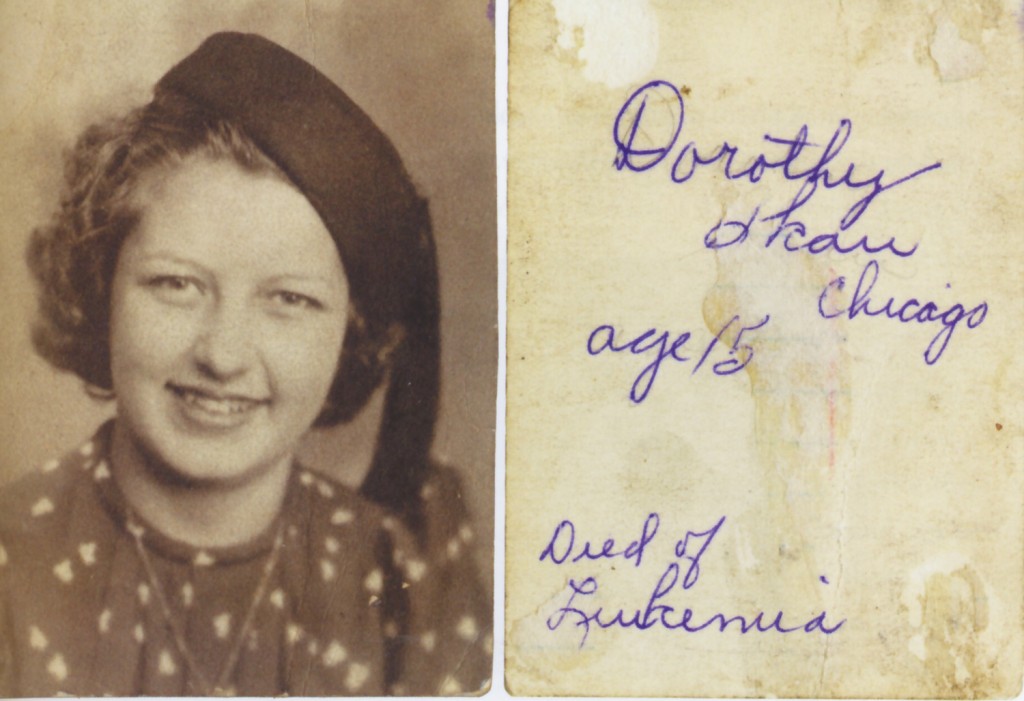 Dorothy
Chicago
age 15
Died of
Lukemia